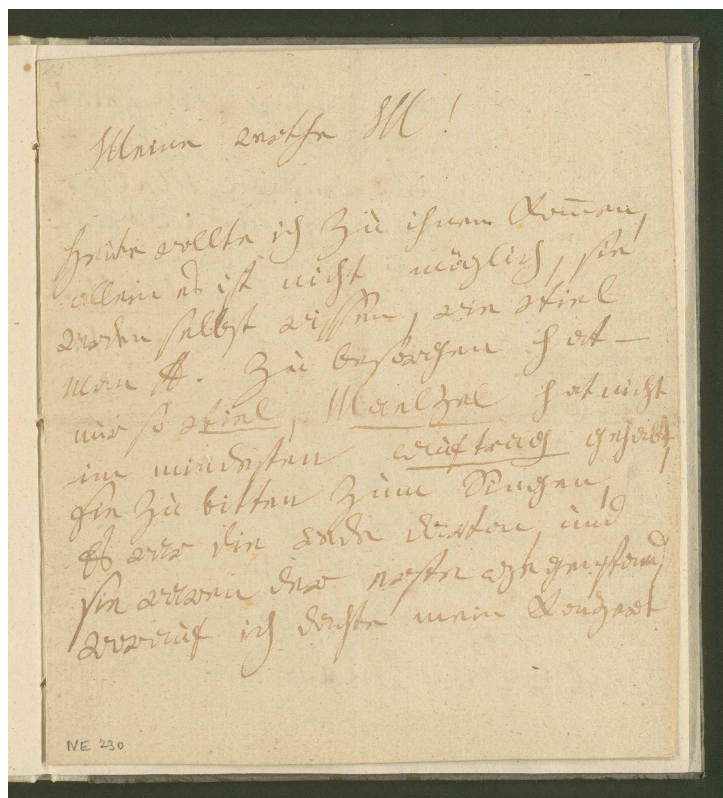 Meine werthe M!
Heute wollte ich zu ihnen kom̅en,
allein es ist nicht möglich, sie
werden selbst wissen, wie viel
man zu besorgen hat –
nur so viel, Maelzel hat nicht
im mindesten auftrag gehabt,
sie zu bitten zum Singen,
Es war die rede davon, und
sie waren der erste gegenstand,
worauf ich dachte mein Konzert
NE 230